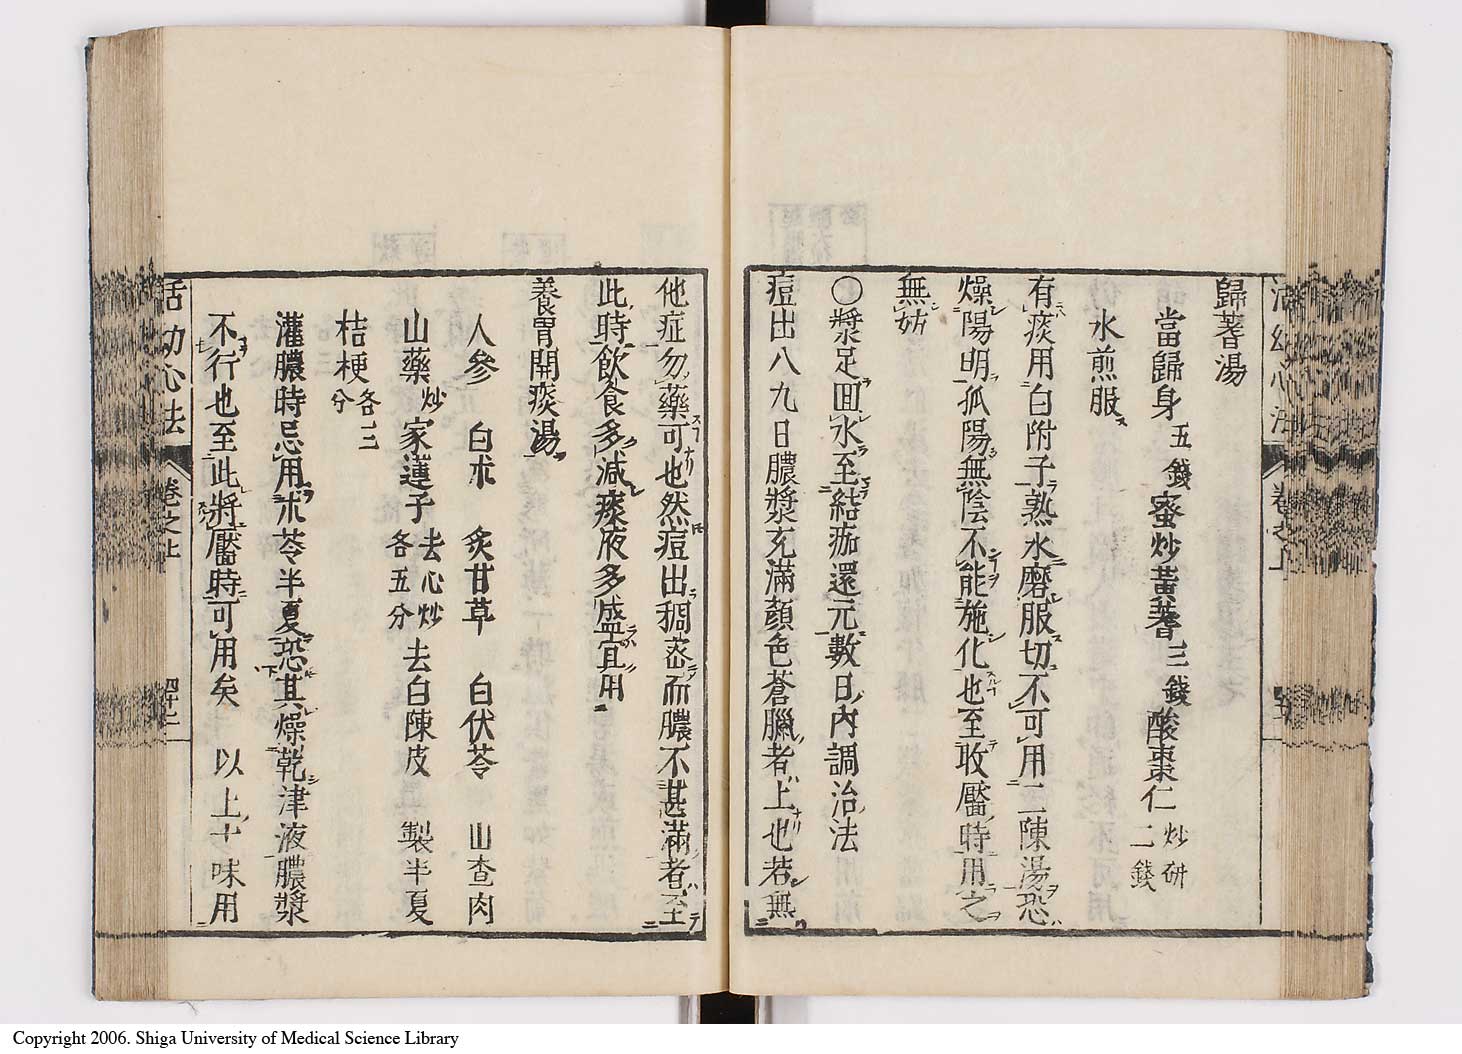 歸蓍湯
當歸身五錢 蜜炒黃蓍三錢 酸棗仁炒研二錢
水煎服
有痰用白附子熟水磨服切不可用二陳湯恐
燥陽明孤陽無陰不能施化也至收靨時用之
無妨
〇漿足回水至結痂還元數日內調治法
痘出八九日膿漿充滿顏色蒼臘者上也若無
他症勿藥可也然痘出稠密而膿不甚滿者至
此時飲食多減痰液多盛宜用
養胃開痰湯
人參 白朮 炙甘草 白伏苓 山查肉
山藥炒 家蓮子去心炒各五分 去白陳皮 製半夏
桔梗各三分
灌膿時忌用朮苓半夏恐其燥乾津液膿漿
不行也至此將靨時可用矣 以上十味用
活幼心法 卷之上 四十二
Copyright 2006. Shiga University of Medical Science Library